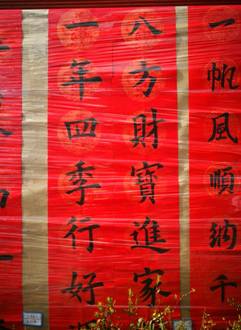 一帆風順納千
八方財寶進家
一年四季行好